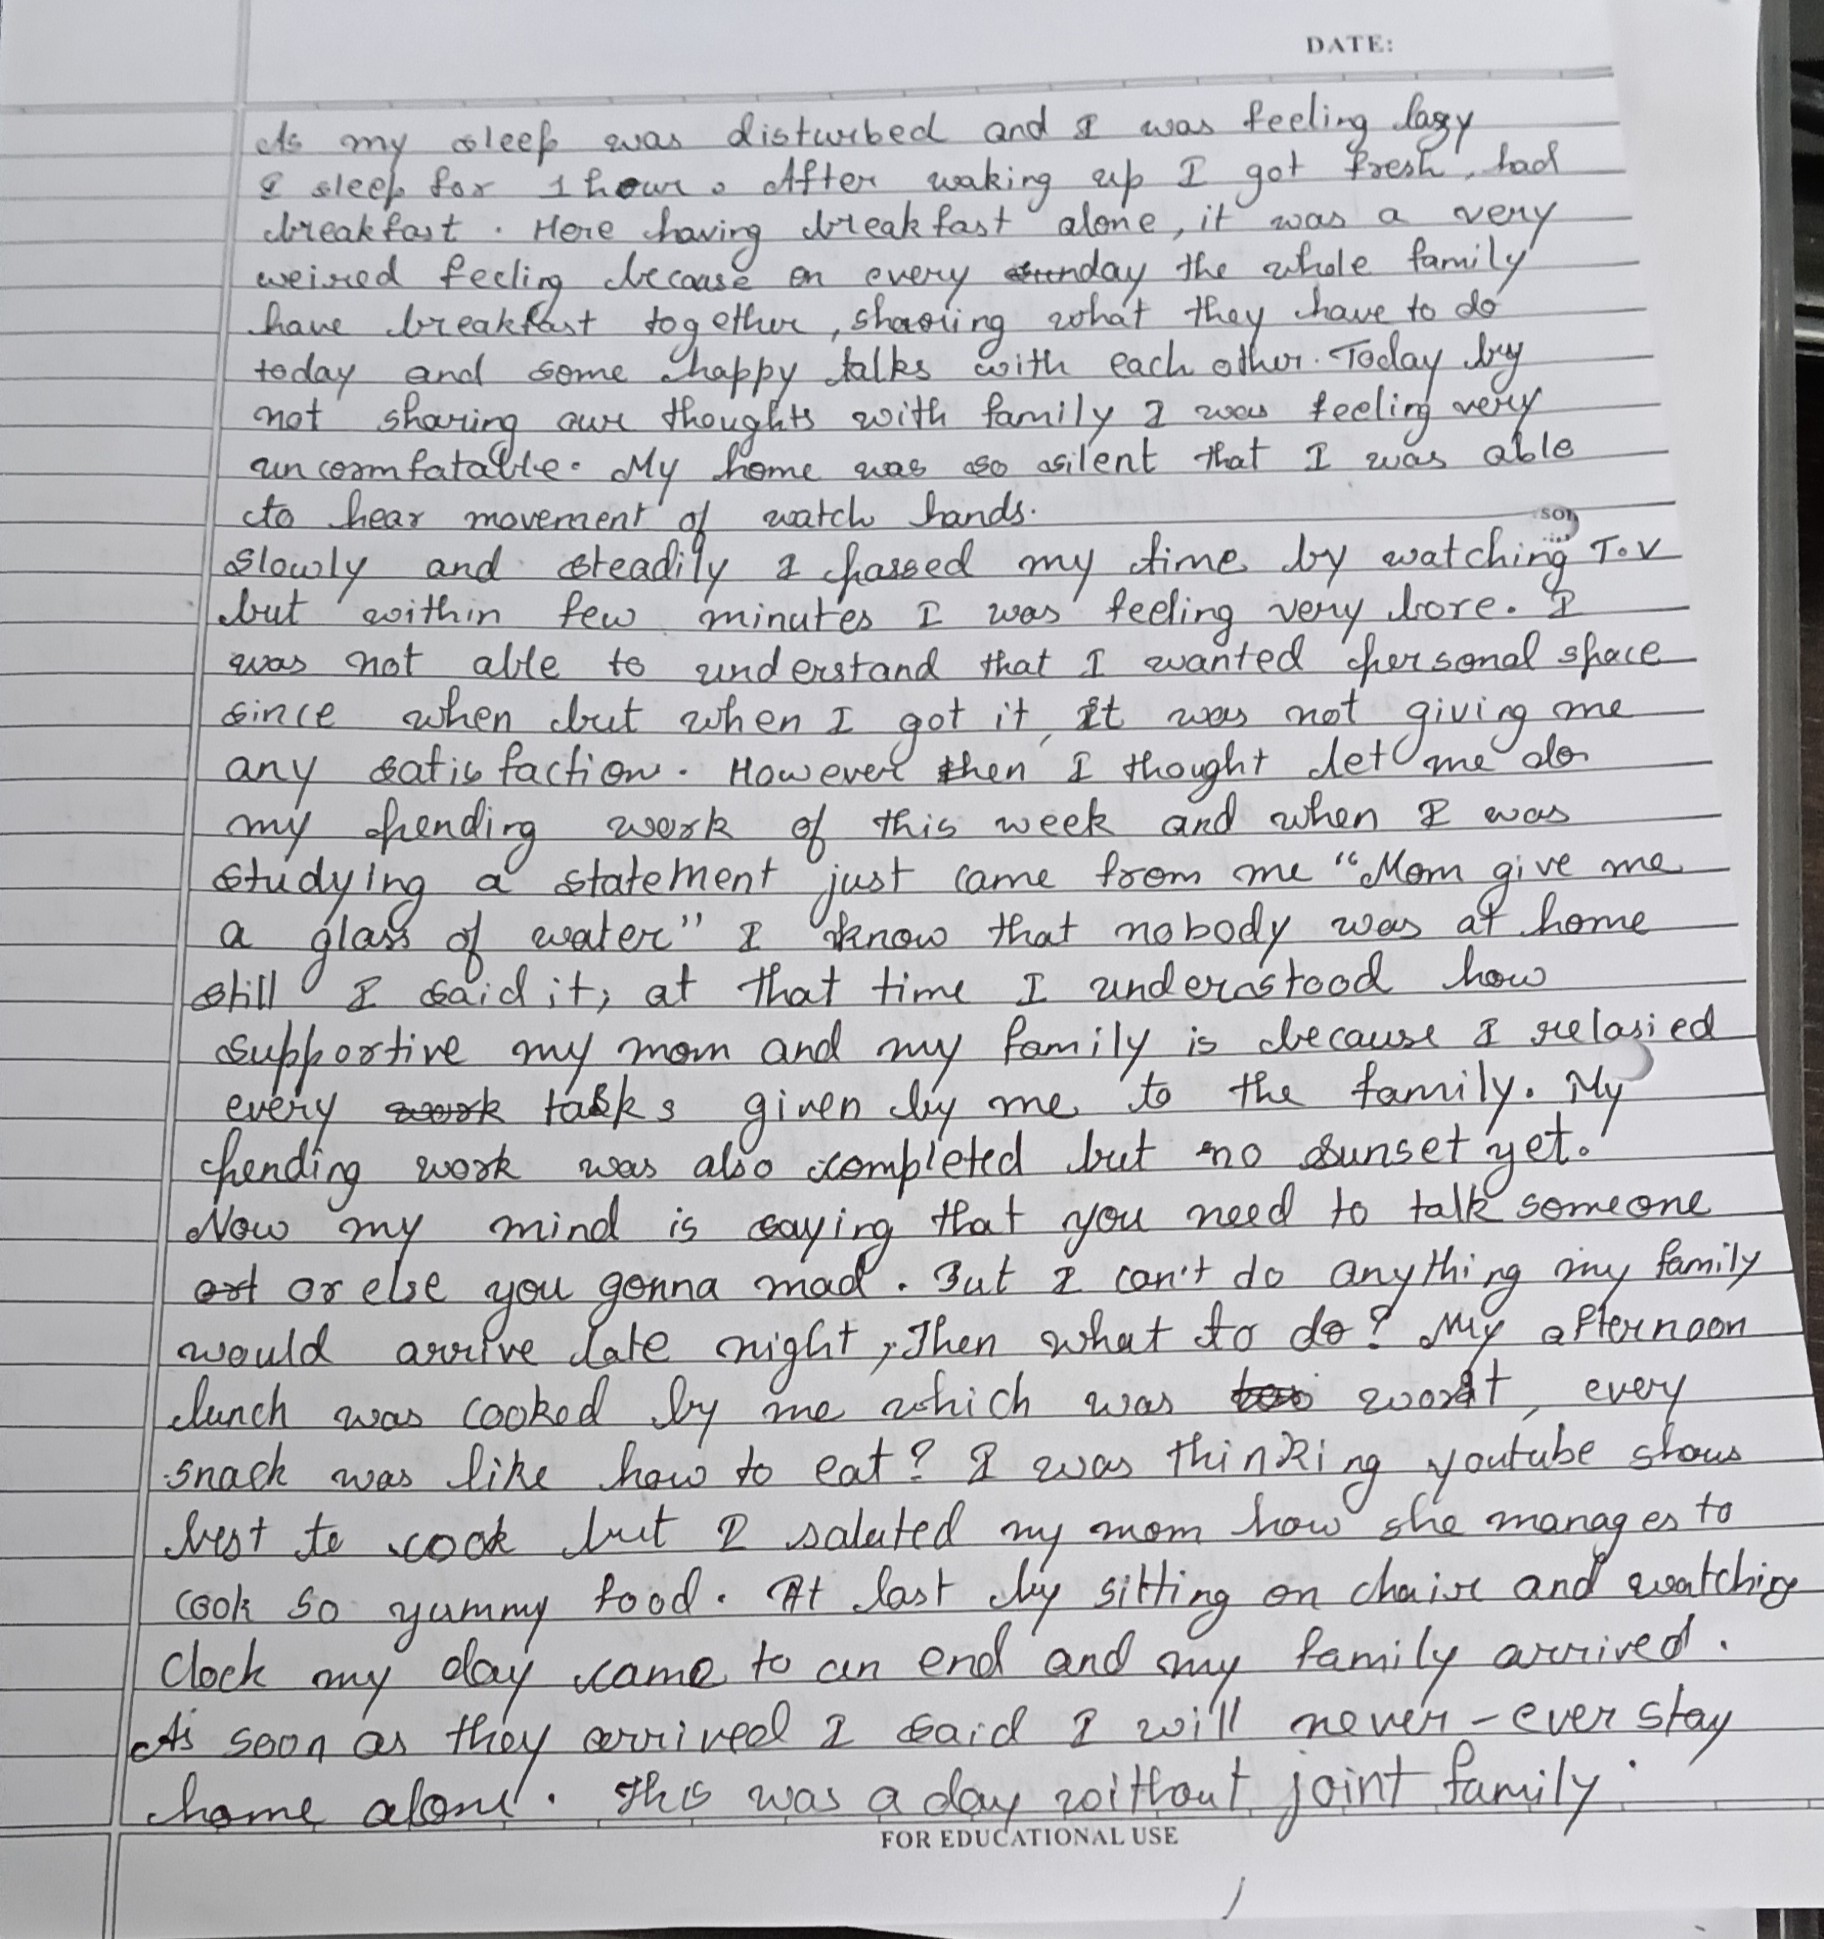 DATE:
As my sleep was disturbed and I was feeling lazy
I sleep for 1 hour. After waking up I got fresh, had
breakfast. Here having breakfast alone, it was a very
weired feeling because on every sunday the whole family
have breakfast together, sharing what they have to do
today and some happy talks with each other. Today by
not sharing our thoughts with family I was feeling very
uncomfatable. My home was so silent that I was able
to hear movement of watch hands.
Slowly and steadily I passed my time by watching T.V
but within few minutes I was feeling very bore. I
was not able to understand that I wanted personal space
since when but when I got it, it was not giving me
any satisfaction. However then I thought let me do
my pending work of this week and when I was
studying a statement just came from me "Mom give me
a glass of water" I know that nobody was at home
still I said it, at that time I understood how
supportive my mom and my family is because I relasied
every work tasks given by me to the family. My
pending work was also completed but no sunset yet.
Now my mind is saying that you need to talk someone
or else you gonna mad. But I can't do anything my family
would arrive late night, Then what to do? My afternoon
lunch was cooked by me which was too worst, every
snack was like how to eat? I was thinking youtube shows
best to cook but I saluted my mom how she manages to
cook so yummy food. At last by sitting on chair and watching
clock my day came to an end and my family arrived.
As soon as they arrived I said I will never-ever stay
home alone. This was a day without joint family.
FOR EDUCATIONAL USE